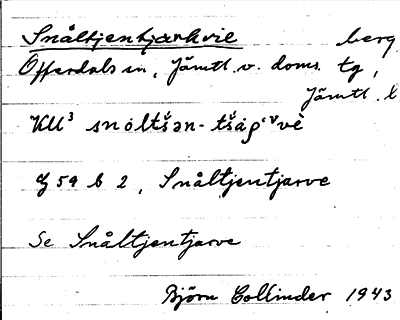 Snåltjentjarkvie berg
Offerdals sn, Jämtl. v. doms. tg,
Jämtl. l
KU³ snoltšən-tšåρ'ᵛvè
G 59 b 2, Snåltjentjarve
Se Snåltjentjarve
Björn Collinder 1943